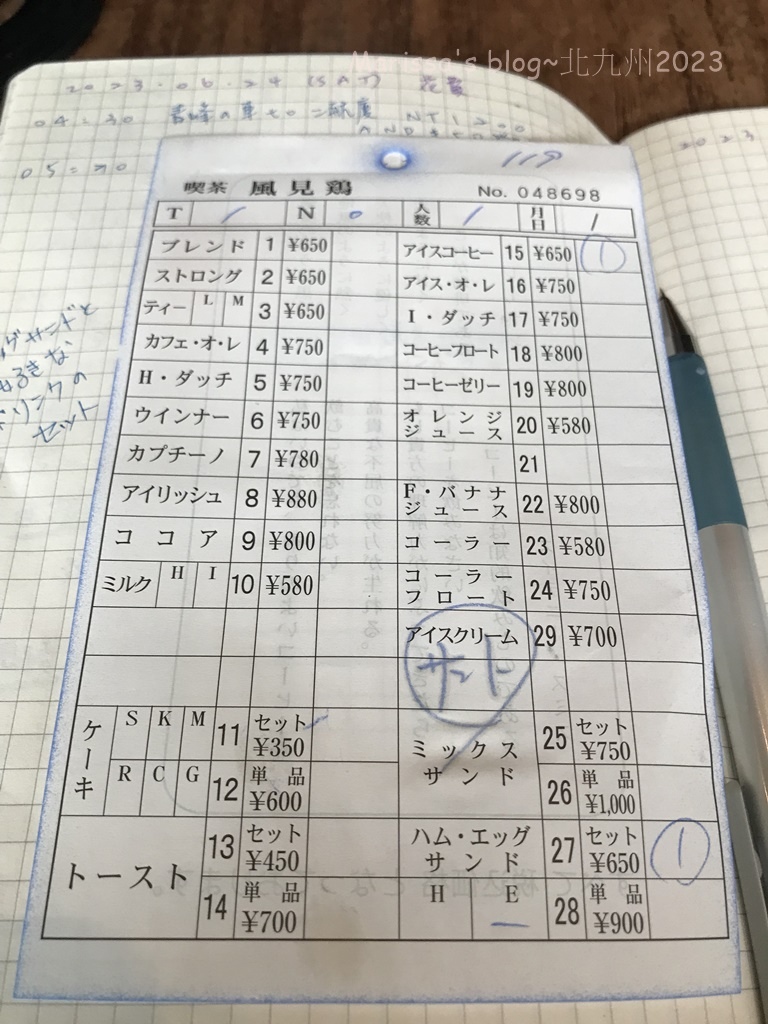 Marissa's blog~北九州2023
2023.06.24 (SAT) 花費
04:30
119
喫茶 風見鶏 No. 048698
T / N 0 人数 / 月日 /
ブレンド 1 ¥650 アイスコーヒー 15 ¥650 1
ストロング 2 ¥650 アイス・オ・レ 16 ¥750
ティー L M 3 ¥650 I・ダッチ 17 ¥750
カフェ・オ・レ 4 ¥750 コーヒーフロート 18 ¥800
H・ダッチ 5 ¥750 コーヒーゼリー 19 ¥800
ウインナー 6 ¥750 オレンジジュース 20 ¥580
カプチーノ 7 ¥780 21
アイリッシュ 8 ¥880 F・バナナジュース 22 ¥800
ココア 9 ¥800 コーラー 23 ¥580
ミルク H I 10 ¥580 コーラーフロート 24 ¥750
アイスクリーム 29 ¥700
サンド
ケーキ S K M 11 セット ¥350 ミックスサンド 25 セット ¥750
R C G 12 単品 ¥600 26 単品 ¥1,000
トースト 13 セット ¥450 ハム・エッグサンド 27 セット ¥650 1
14 単品 ¥700 H E 28 単品 ¥900
グサンドと
きな
ドリンクの
セット